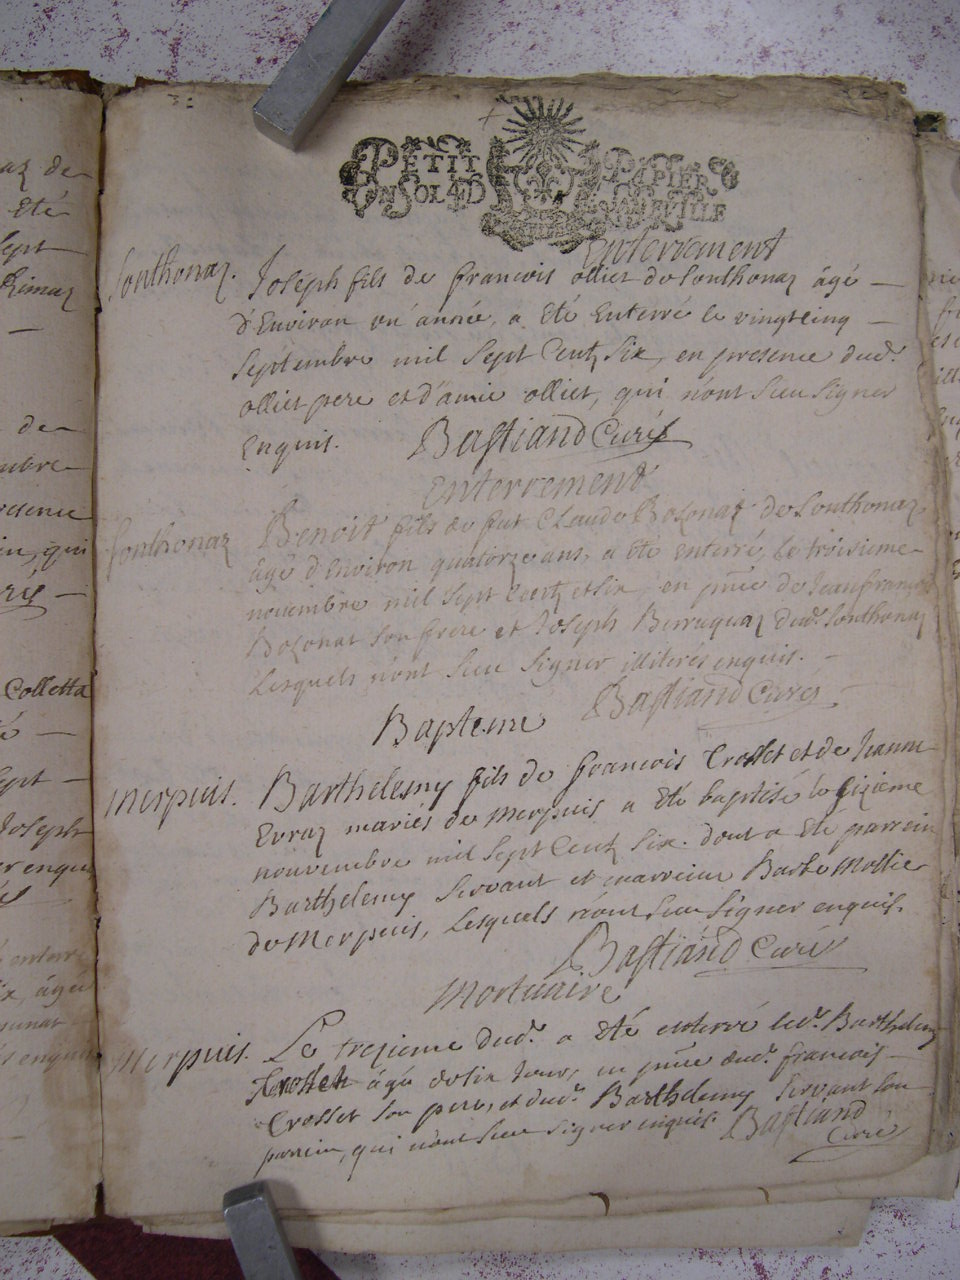 PETIT PAPIER
UN SOL 4 D
Enterrement
Sonthonaz. Joseph fils de francois olliet de Sonthonaz âgé —
d'Environ un année, a Eté Enterré le vingtcinq —
Septembre mil Sept Centz Six, en presence dud.
olliet pere et d'amie olliet, qui n'ont Sceu Signer
Enquis. Bastiand Curé
Enterrement
Sonthonaz Benoit fils de fut Claude Bozonaz de Sonthonaz
âgé d'Environ quatorze ans, a Eté enterré, le troisieme
novembre mil Sept Centz et six, en pnce de Jeanfrançois
Bozonat Son frere et Joseph Berruquaz dud. Sonthonaz
Lesquels n'ont Sceu Signer illiterés enquis. —
Bapteme Bastiand Curé
Merpuis. Barthelemy fils de francois Crosset et de Jeanne
Evraz mariés de Merpuis a Eté baptisé le sixieme
novembre mil Sept Centz Six. dont a Ete parrein
Barthelemy Servant et marreine Barbe Mollie
de Merpuis, Lesquels n'ont Sceu Signer enquis.
Bastiand Curé
Mortuaire
Merpuis. Le tresieme dud. a Eté enterré led. Barthelemy
Crosset âgé de six Jours, en pnce dud. francois —
Crosset Son pere, et dud. Barthelemy Servant Son
parrein, qui n'ont Sceu Signer enquis. Bastiand
Curé